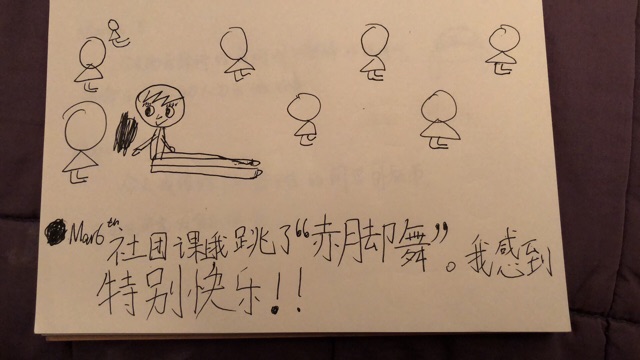 Mar6th 社团课我跳了“赤脚舞”。我感到
特别快乐!!